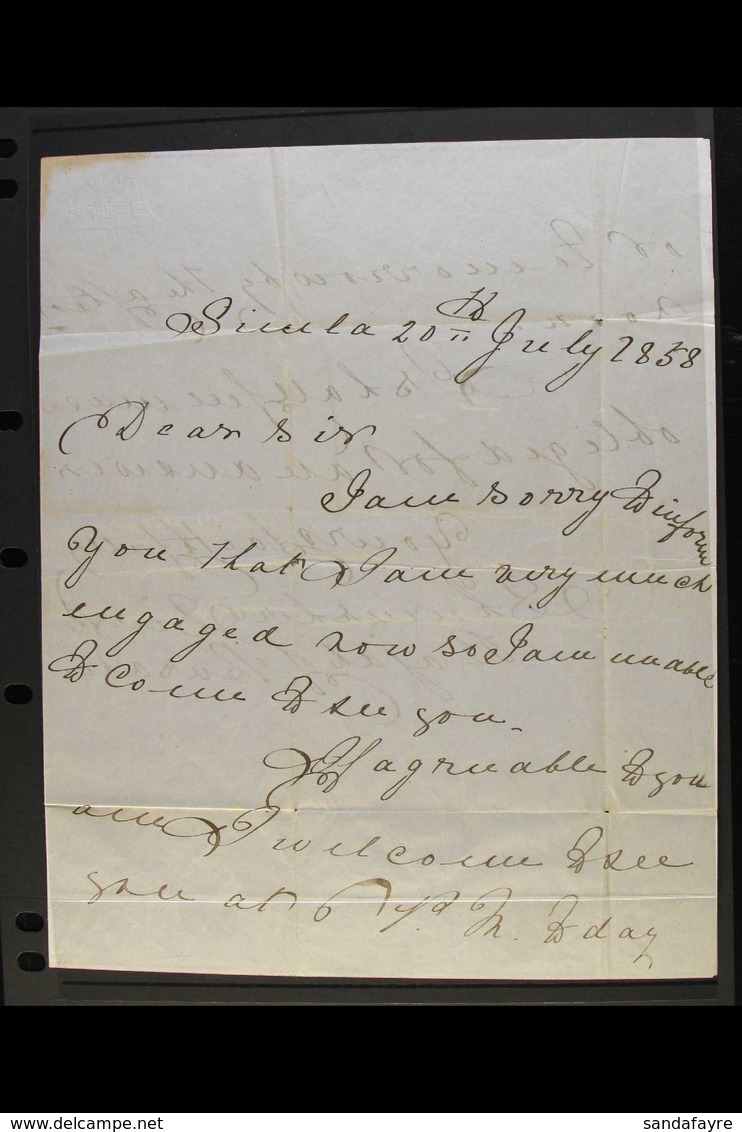 Simla 20th July 1858
Dear Sir
I am sorry to inform
you that I am very much
engaged now so I am unable
to come to see you.
If agreuable to you
am I welcome to see
you at 6 P. M. to day
delcampe.net
sandafayre